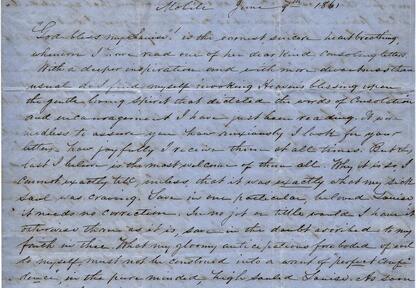 Mobile June 7th 1861
"God bless my Louise"! is the earnest sincere heartbreathing
whenever I have read one of her dear kind consoling letters
With a deeper inspiration and with more devoutness than
usual do I find myself invoking Heavens blessing upon
the gentle loving spirit that dictated the words of Consolation
and encouragement I have just been reading. It is
needless to assure you how anxiously I look for your
letters how joyfully I receive them at all times. But the
last I believe is the most welcome of them all. Why it is so I
cannot exactly tell, unless, that it was exactly what my sick
soul was craving. Save in one particular, beloved Louise
it needs no correction. In no jot or tittle would I have it
otherwise than as it is, save in the doubt ascribed to my
faith in thee. What my gloomy anticipations foreboded of evil
to myself, must not be construed into a want of "perfect confi
dence, in the pure minded, high souled Louise. As soon